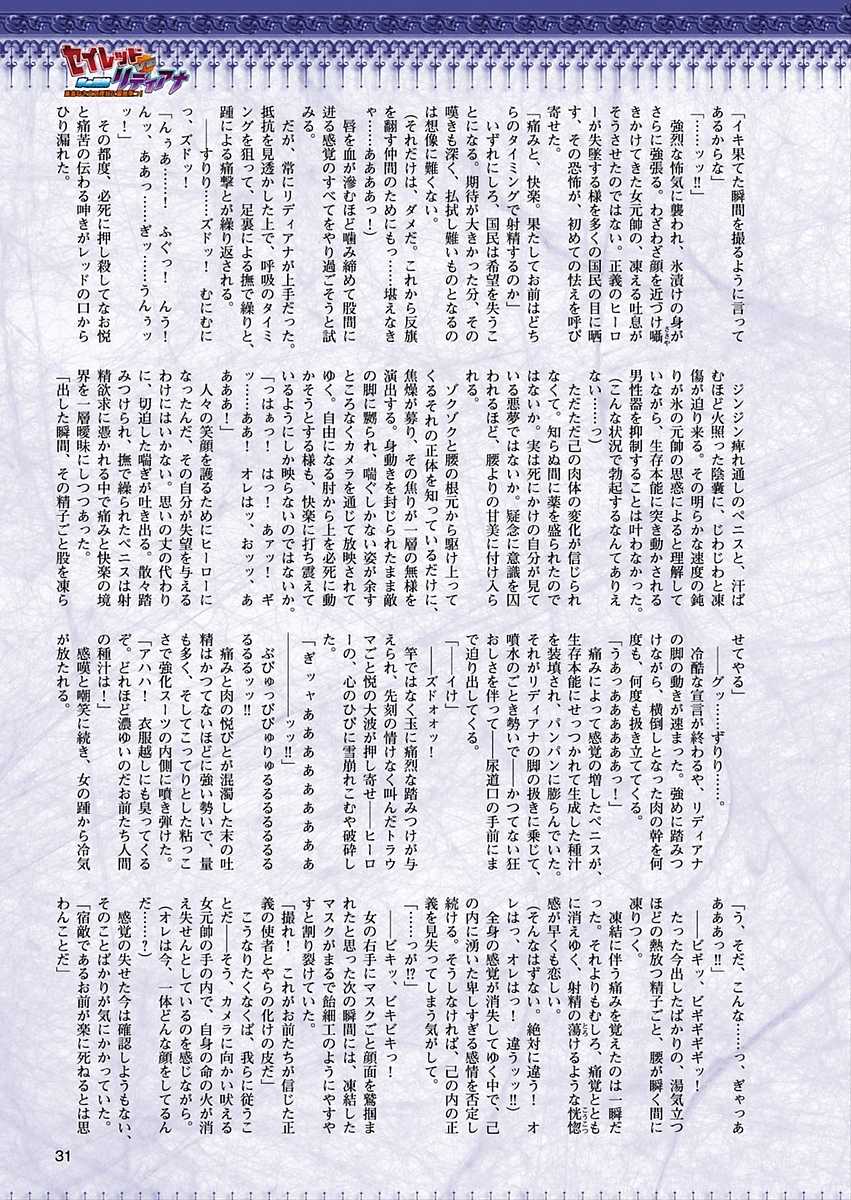 セイレッドvsリディアナ
「イキ果てた瞬間を撮るように言って
あるからな」
「……ッッ‼」
　強烈な怖気に襲われ、氷漬けの身が
さらに強張る。わざわざ顔を近づけ囁
きかけてきた女元帥の、凍える吐息が
そうさせたのではない。正義のヒーロ
ーが失墜する様を多くの国民の目に晒
す、その恐怖が、初めての怯えを呼び
寄せた。
「痛みと、快楽。果たしてお前はどち
らのタイミングで射精するのか」
　いずれにしろ、国民は希望を失うこ
とになる。期待が大きかった分、その
嘆きも深く、払拭し難いものとなるの
は想像に難くない。
（それだけは、ダメだ。これから反旗
を翻す仲間のためにもっ……堪えなき
ゃ……ああああっ！）
　唇を血が滲むほど噛み締めて股間に
迸る感覚のすべてをやり過ごそうと試
みる。
　だが、常にリディアナが上手だった。
抵抗を見透かした上で、呼吸のタイミ
ングを狙って、足裏による撫で繰りと、
踵による痛撃とが繰り返される。
　――すりり……ズドッ！　むにむに
っ、ズドッ！
「んぅあ……！　ふぐっ！　んう！
んッ、ああっ……ぎッ……うんぅッ
ッ！」
　その都度、必死に押し殺してなお悦
と痛苦の伝わる呻きがレッドの口から
ひり漏れた。
　ジンジン痺れ通しのペニスと、汗ば
むほど火照った陰嚢に、じわじわと凍
傷が迫り来る。その明らかな速度の鈍
りが氷の元帥の思惑によると理解して
いながら、生存本能に突き動かされる
男性器を抑制することは叶わなかった。
（こんな状況で勃起するなんてありえ
ない……っ）
　ただただ己の肉体の変化が信じられ
なくて。知らぬ間に薬を盛られたので
はないか。実は死にかけの自分が見て
いる悪夢ではないか。疑念に意識を囚
われるほど、腰よりの甘美に付け入ら
れる。
　ゾクゾクと腰の根元から駆け上って
くるそれの正体を知っているだけに、
焦燥が募り、その焦りが一層の無様を
演出する。身動きを封じられたまま敵
の脚に嬲られ、喘ぐしかない姿が余す
ところなくカメラを通じて放映されて
ゆく。自由になる肘から上を必死に動
かそうとする様も、快楽に打ち震えて
いるようにしか映らないのではないか。
「つはぁっ！　はっ！　あァッ！　ギ
ッ……ああ！　オレはッ、おッッ、あ
あああ！」
　人々の笑顔を護るためにヒーローに
なったんだ、その自分が失望を与える
わけにはいかない。思いの丈の代わり
に、切迫した喘ぎが吐き出る。散々踏
みつけられ、撫で繰られたペニスは射
精欲求に憑かれる中で痛みと快楽の境
界を一層曖昧にしつつあった。
「出した瞬間、その精子ごと股を凍ら
せてやる」
　――グッ……ずりり……。
　冷酷な宣言が終わるや、リディアナ
の脚の動きが速まった。強めに踏みつ
けながら、横倒しとなった肉の幹を何
度も、何度も扱き立ててくる。
「うあっっああああああっ！」
　痛みによって感覚の増したペニスが、
生存本能にせっつかれて生成した種汁
を装填され、パンパンに膨らんでいた。
それがリディアナの脚の扱きに乗じて、
噴水のごとき勢いで――かつてない狂
おしさを伴って――尿道口の手前にま
で迫り出してくる。
「――イけ」
　――ズドォオッ！
　竿ではなく玉に痛烈な踏みつけが与
えられ、先刻の情けなく叫んだトラウ
マごと悦の大波が押し寄せ――ヒーロ
ーの、心のひびに雪崩れこむや破砕し
た。
「ぎッャあああああああああああああ
――――ッッ‼」
　ぶぴゅっぴぴゅりゅるるるるるるる
るるるッッ‼
　痛みと肉の悦びとが混濁した末の吐
精はかつてないほどに強い勢いで、量
も多く、そしてこってりとした粘っこ
さで強化スーツの内側に噴き弾けた。
「アハハ！　衣服越しにも臭ってくる
ぞ。どれほど濃ゆいのだお前たち人間
の種汁は！」
　感嘆と嘲笑に続き、女の踵から冷気
が放たれる。
「う、そだ、こんな……っ、ぎゃっあ
あああっ‼」
　――ビギッ、ビギギギギッ！
　たった今出したばかりの、湯気立つ
ほどの熱放つ精子ごと、腰が瞬く間に
凍りつく。
　凍結に伴う痛みを覚えたのは一瞬だ
った。それよりもむしろ、痛覚ととも
に消えゆく、射精の蕩けるような恍惚
感が早くも恋しい。
（そんなはずない。絶対に違う！　オ
レはっ、オレはっ！　違うッッ‼）
　全身の感覚が消失してゆく中で、己
の内に湧いた卑しすぎる感情を否定し
続ける。そうしなければ、己の内の正
義を見失ってしまう気がして。
「……っが⁉」
　――ビキッ、ビキビキっ！
　女の右手にマスクごと顔面を鷲掴ま
れたと思った次の瞬間には、凍結した
マスクがまるで飴細工のようにやすや
すと割り裂けていた。
「撮れ！　これがお前たちが信じた正
義の使者とやらの化けの皮だ」
　こうなりたくなくば、我らに従うこ
とだ――そう、カメラに向かい吠える
女元帥の手の内で、自身の命の火が消
え失せんとしているのを感じながら。
（オレは今、一体どんな顔をしてるん
だ……？）
　感覚の失せた今は確認しようもない、
そのことばかりが気にかかっていた。
「宿敵であるお前が楽に死ねるとは思
わんことだ」
31